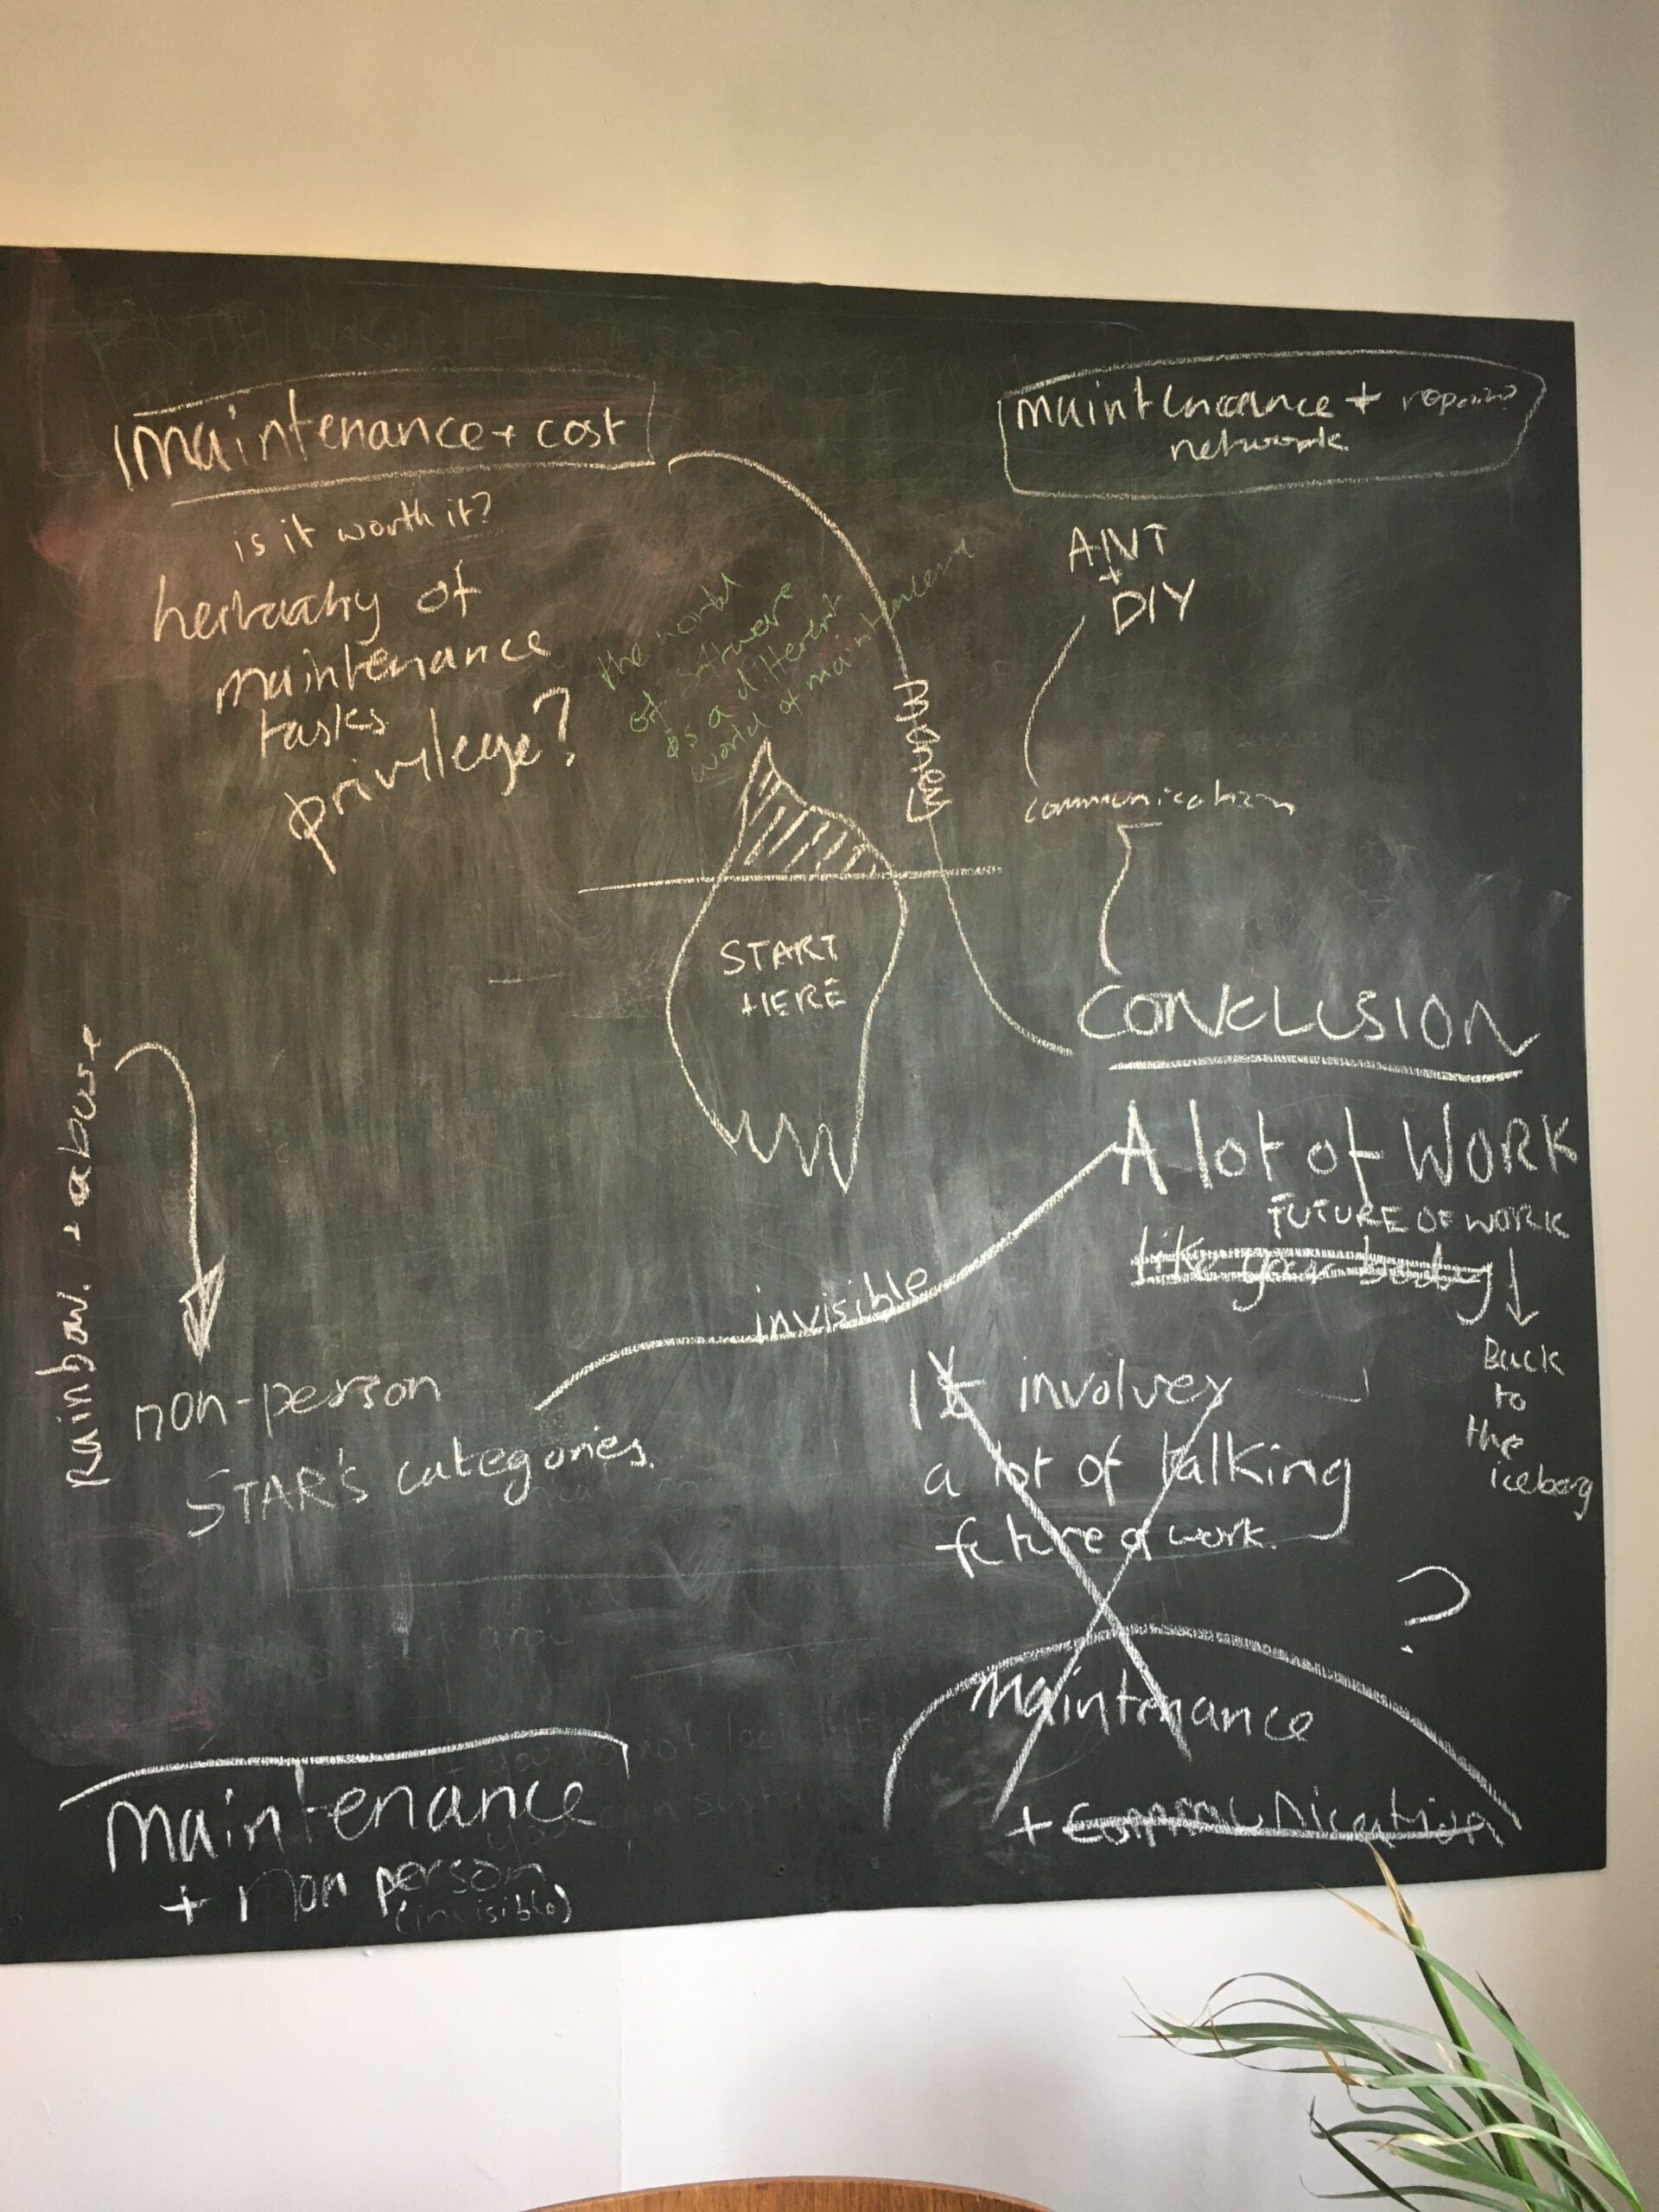 maintenance + cost
is it worth it?
heriarchy of
maintenance
tasks
privilege?
the world
of software
is a different
world of maintenance
Money
+
network
ANT
+
DIY
communication
START
HERE
CONCLUSION
A lot of WORK
FUTURE OF WORK
like your body
Back
to
the
iceberg
invisible
Rainbow. + abuse
non-person
STAR'S categories.
It involves
a lot of talking
future of work.
?
maintenance
+ communication
maintenance
+ non person
(invisible)